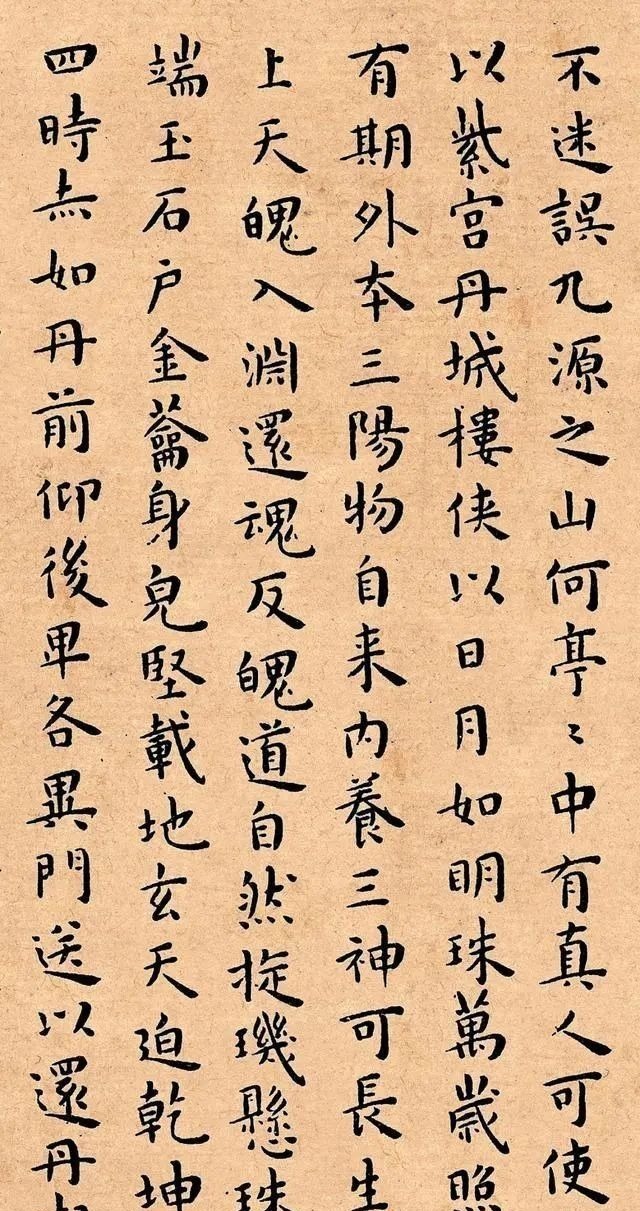 不迷誤九源之山何亭〻中有真人可使
以紫宮丹城樓俠以日月如明珠萬歲照
有期外本三陽物自来内養三神可長生
上天魄入淵還魂反魄道自然掟璣懸珠
端玉石户金籥身皃堅載地玄天迫乾坤
四時赤如丹前仰後卑各異門送以還丹